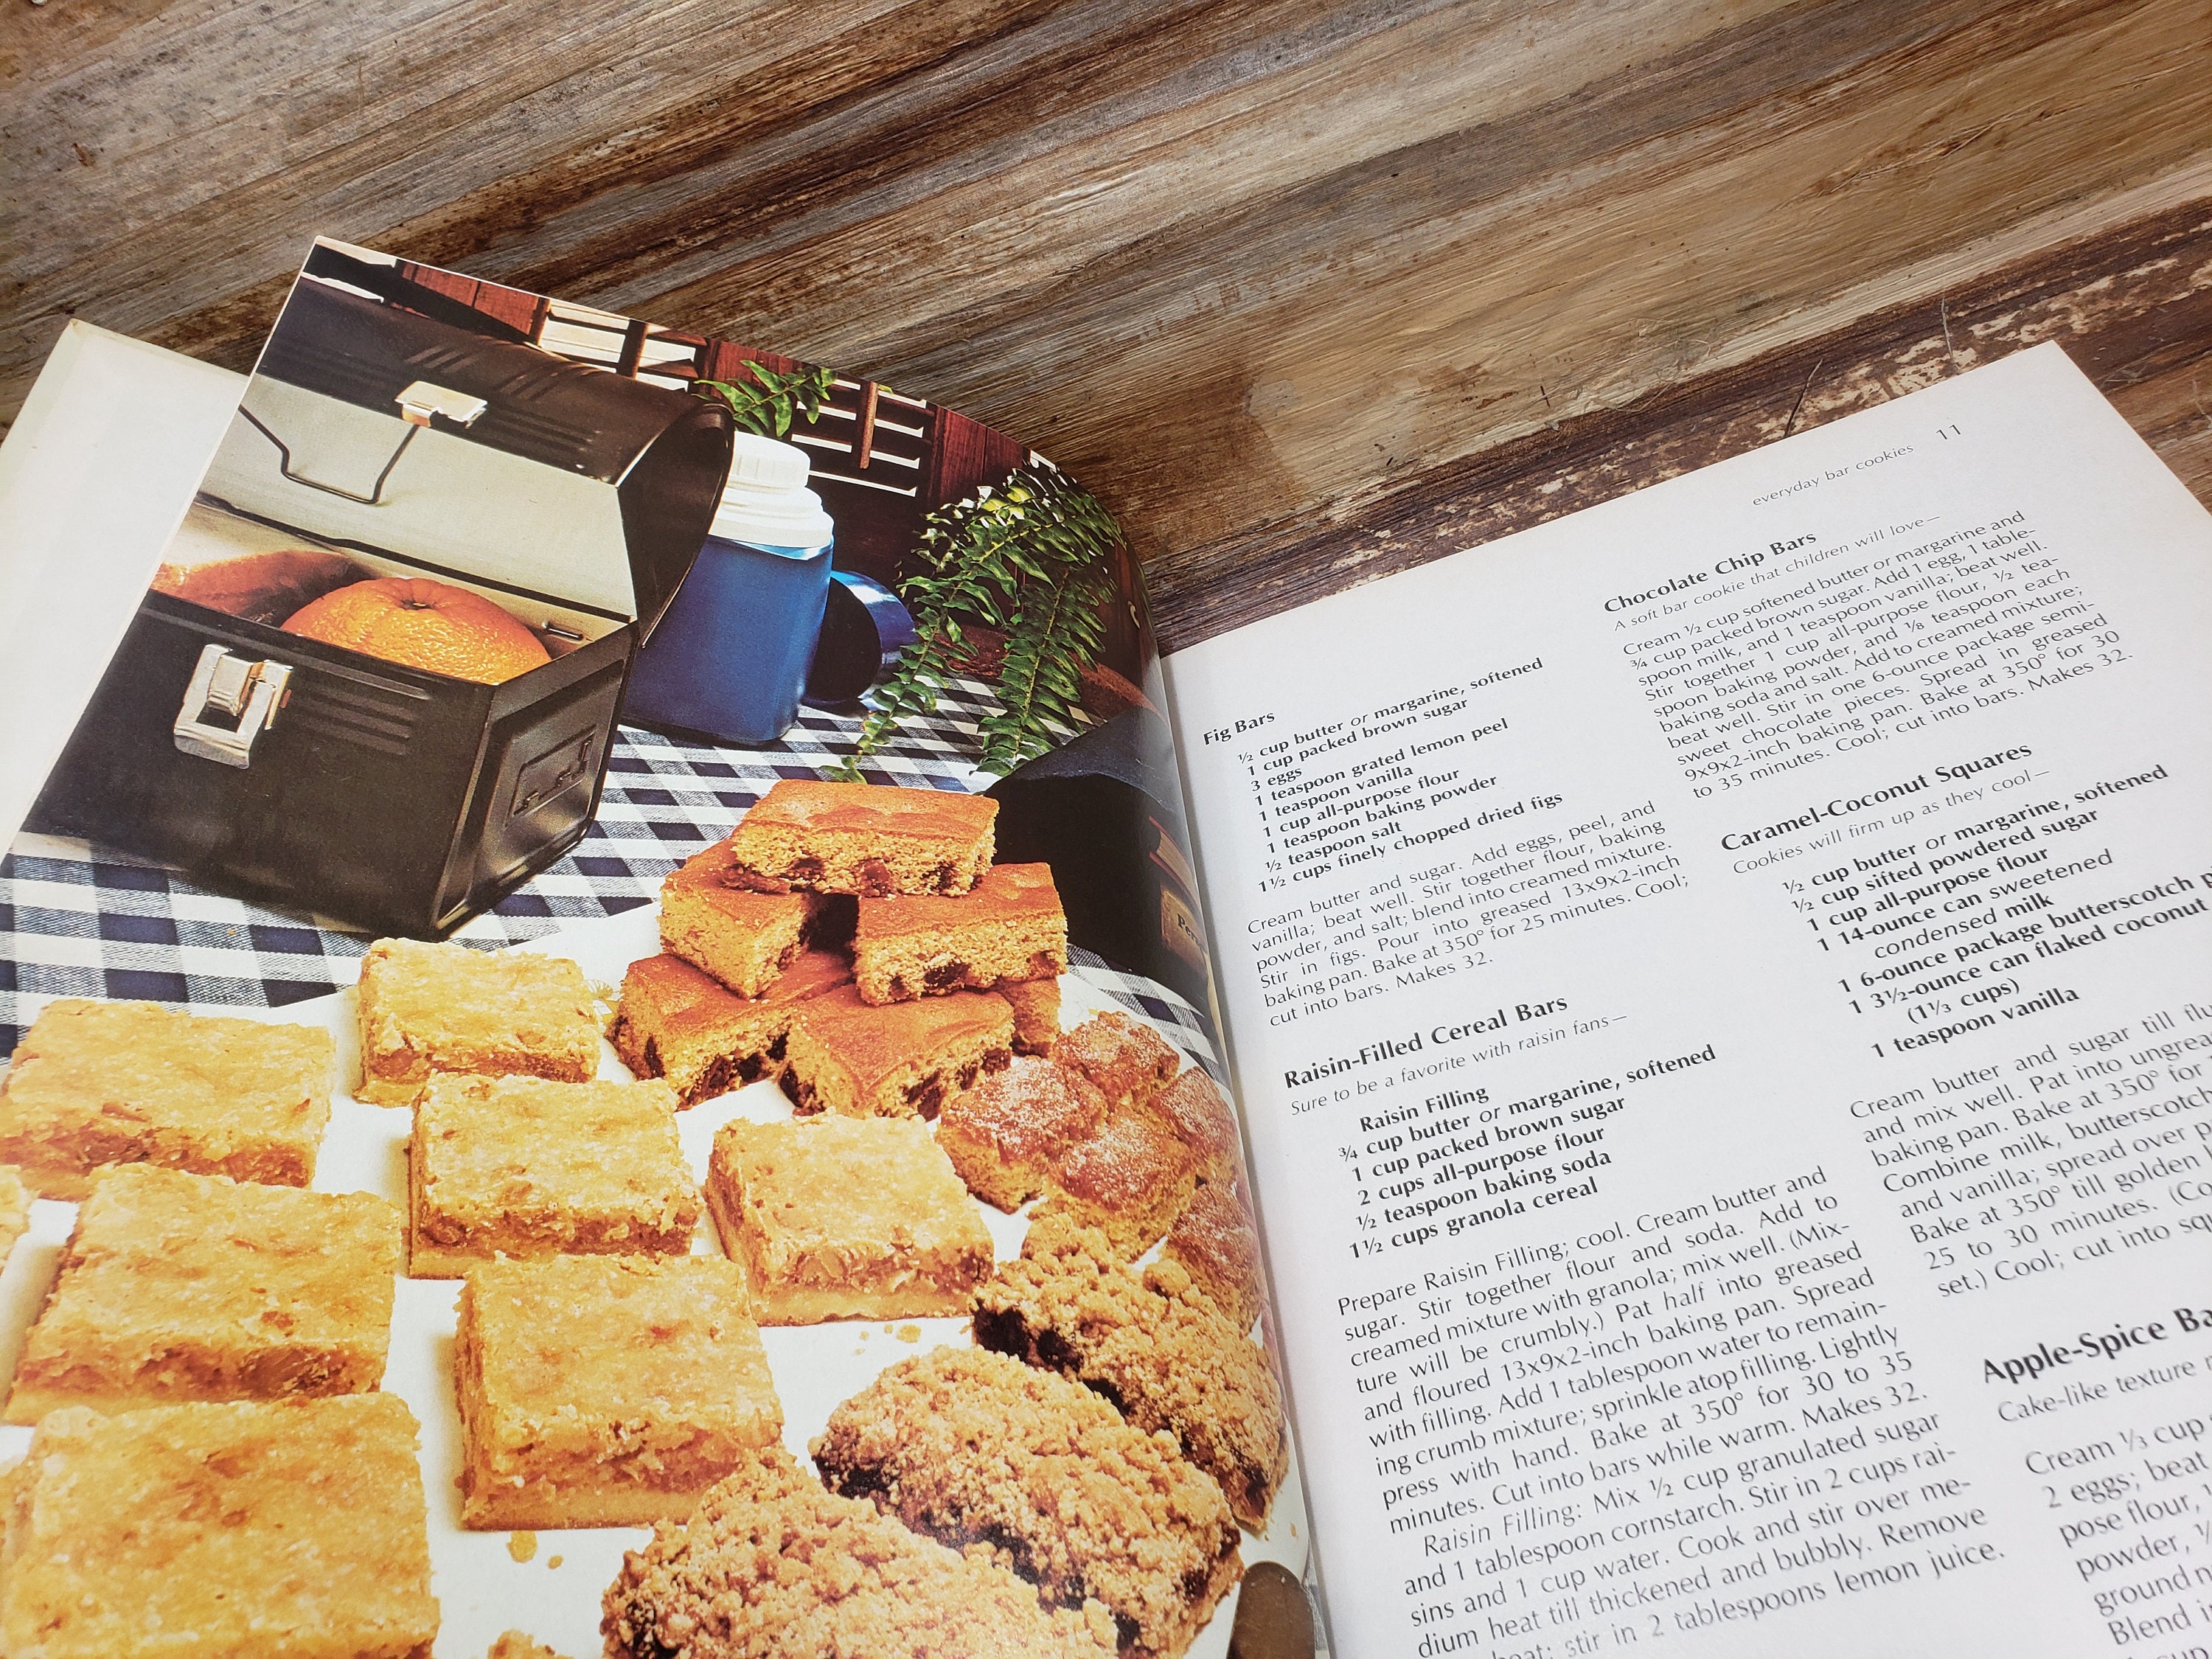 everyday bar cookies 11
Fig Bars
½ cup butter or margarine, softened
1 cup packed brown sugar
3 eggs
1 teaspoon grated lemon peel
1 teaspoon vanilla
1 cup all-purpose flour
1 teaspoon baking powder
½ teaspoon salt
1½ cups finely chopped dried figs
Cream butter and sugar. Add eggs, peel, and
vanilla; beat well. Stir together flour, baking
powder, and salt; blend into creamed mixture.
Stir in figs. Pour into greased 13x9x2-inch
baking pan. Bake at 350° for 25 minutes. Cool;
cut into bars. Makes 32.
Raisin-Filled Cereal Bars
Sure to be a favorite with raisin fans—
Raisin Filling
¾ cup butter or margarine, softened
1 cup packed brown sugar
2 cups all-purpose flour
½ teaspoon baking soda
1½ cups granola cereal
Prepare Raisin Filling; cool. Cream butter and
sugar. Stir together flour and soda. Add to
creamed mixture with granola; mix well. (Mix-
ture will be crumbly.) Pat half into greased
and floured 13x9x2-inch baking pan. Spread
with filling. Add 1 tablespoon water to remain-
ing crumb mixture; sprinkle atop filling. Lightly
press with hand. Bake at 350° for 30 to 35
minutes. Cut into bars while warm. Makes 32.
Raisin Filling: Mix ½ cup granulated sugar
and 1 tablespoon cornstarch. Stir in 2 cups rai-
sins and 1 cup water. Cook and stir over me-
dium heat till thickened and bubbly. Remove
heat; stir in 2 tablespoons lemon juice.
Chocolate Chip Bars
A soft bar cookie that children will love—
Cream ½ cup softened butter or margarine and
¾ cup packed brown sugar. Add 1 egg, 1 table-
spoon milk, and 1 teaspoon vanilla; beat well.
Stir together 1 cup all-purpose flour, ½ tea-
spoon baking powder, and ⅛ teaspoon each
baking soda and salt. Add to creamed mixture;
beat well. Stir in one 6-ounce package semi-
sweet chocolate pieces. Spread in greased
9x9x2-inch baking pan. Bake at 350° for 30
to 35 minutes. Cool; cut into bars. Makes 32.
Caramel-Coconut Squares
Cookies will firm up as they cool—
½ cup butter or margarine, softened
½ cup sifted powdered sugar
1 cup all-purpose flour
1 14-ounce can sweetened
condensed milk
1 6-ounce package butterscotch
1 3½-ounce can flaked coconut
(1⅓ cups)
1 teaspoon vanilla
Cream butter and sugar till
and mix well. Pat into
baking pan. Bake at 350° for
Combine milk, butterscotch
and vanilla; spread over
Bake at 350° till golden
25 to 30 minutes.
set.) Cool; cut into
Apple-Spice
Cake-like texture
Cream ⅓ cup
2 eggs; beat
pose flour,
powder,
ground
Blend